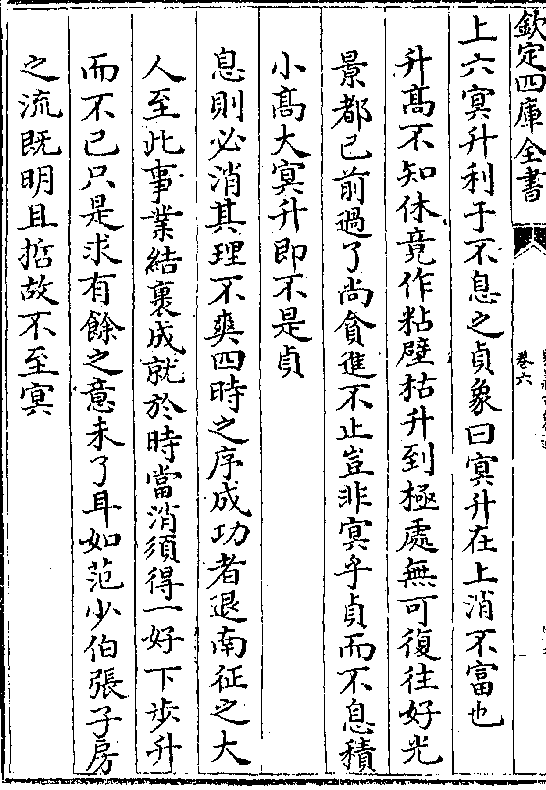 欽定四庫全書
卷六
上六冥升利于不息之貞象曰冥升在上消不富也
升髙不知休竟作粘壁枯升到極處無可復往好光
景都已前過了尚貪進不止豈非冥乎貞而不息積
小髙大冥升即不是貞
息則必消其理不爽四時之序成功者退南征之大
人至此事業結裹成就於時當消須得一好下歩升
而不已只是求有餘之意未了耳如范少伯張子房
之流既明且哲故不至冥